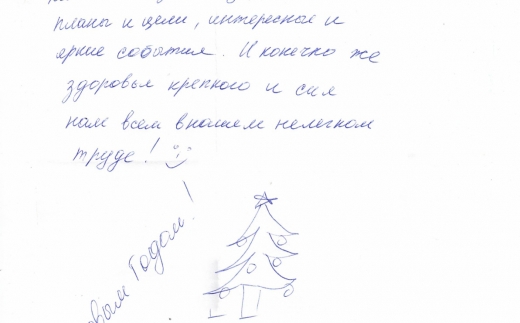 планы и цели, интересные и
яркие события. И конечно же
здоровья крепкого и сил
нам всем в нашем нелегком
труде!
овым Годом!